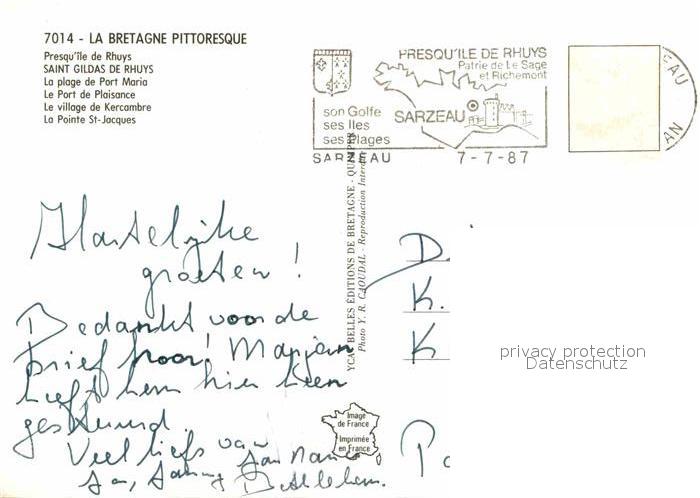 7014 - LA BRETAGNE PITTORESQUE
Presqu'île de Rhuys
SAINT GILDAS DE RHUYS
La plage de Port Maria
Le Port de Plaisance
Le village de Kercambre
La Pointe St-Jacques
PRESQU'ILE DE RHUYS
Patrie de Le Sage
et Richemont
son Golfe
ses Iles
ses Plages
SARZEAU
SARZEAU 7-7-87
EAU
AN
YCA BELLES ÉDITIONS DE BRETAGNE - QUIMPER
Photo Y. R. CAOUDAL - Reproduction Interdite
Hartelijke
groeten!
Bedankt voor de
brief hoor! Marjan
heeft hem hier heen
gestuurd.
Veel liefs van
Jan,
D.
K.
K
privacy protection
Datenschutz
Image
de France
Imprimée
en France